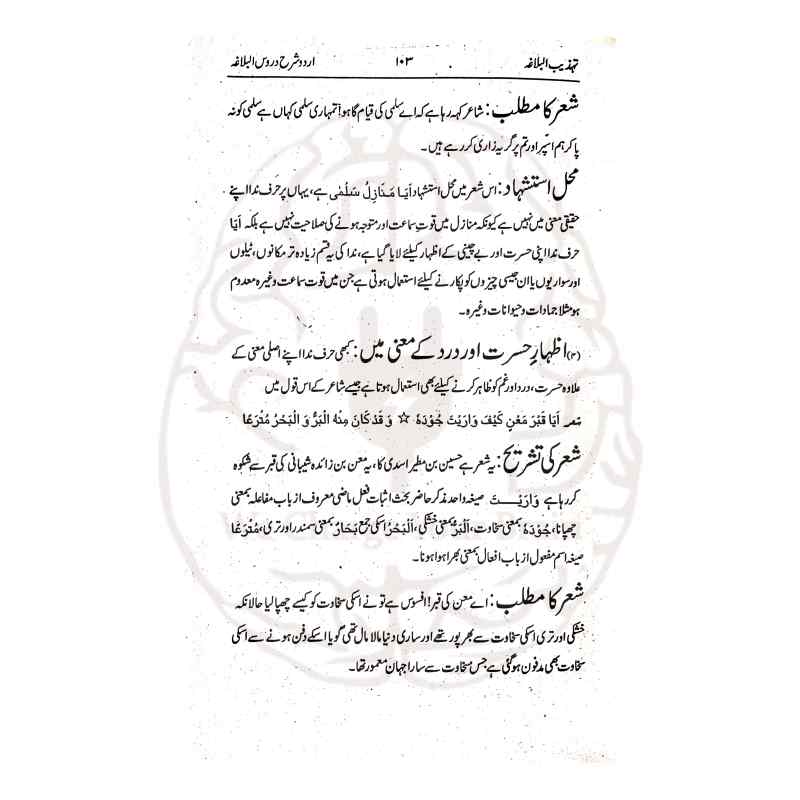 تہذیب البلاغہ ۱۰۳ اردو شرح دروس البلاغہ
شعر کا مطلب: شاعر کہہ رہا ہے کہ اے سلمی کی قیام گاہو! تمہاری سلمی کہاں ہے سلمی کو نہ
پا کر ہم اسپر اور تم پر گریہ زاری کر رہے ہیں۔
محل استشہاد: اس شعر میں محل استشہاد أیَا مَنَازِلُ سَلْمٰی ہے، یہاں پر حرف ندا اپنے
حقیقی معنی میں نہیں ہے کیونکہ منازل میں قوتِ سماعت اور متوجہ ہونے کی صلاحیت نہیں ہے بلکہ أیَا
حرف ندا اپنی حسرت اور بے چینی کے اظہار کیلئے لایا گیا ہے، ندا کی یہ قسم زیادہ تر مکانوں، ٹیلوں
اور سواریوں یا ان جیسی چیزوں کو پکارنے کیلئے استعمال ہوتی ہے جن میں قوت سماعت وغیرہ معدوم
ہو مثلا جمادات و حیوانات وغیرہ۔
(۴) اظہارِ حسرت اور درد کے معنی میں: کبھی حرف ندا اپنے اصلی معنی کے
علاوہ حسرت، درد اور غم کو ظاہر کرنے کیلئے بھی استعمال ہوتا ہے جیسے شاعر کے اس قول میں
شعر أیَا قَبْرَ مَعْنٍ کَیْفَ وَارَیْتَ جُوْدَہٗ ☆ وَقَدْ کَانَ مِنْہُ الْبَرُّ وَ الْبَحْرُ مُتْرَعَا
شعر کی تشریح: یہ شعر ہے حسین بن مطیر اسدی کا، یہ معن بن زائدہ شیبانی کی قبر سے شکوہ
کر رہا ہے وَارَیْتَ صیغہ واحد مذکر حاضر بحث اثبات فعل ماضی معروف از باب مفاعلہ بمعنی
چھپانا، جُوْدَہٗ بمعنی سخاوت، اَلْبَرُّ بمعنی خشکی، اَلْبَحْرُ اسکی جمع بَحَارٌ بمعنی سمندر اور تری، مُتْرَعَا
صیغہ اسم مفعول از باب افعال بمعنی بھرا ہوا ہونا۔
شعر کا مطلب: اے معن کی قبر! افسوس ہے تو نے اسکی سخاوت کو کیسے چھپا لیا حالانکہ
خشکی اور تری اسکی سخاوت سے بھرپور تھے اور ساری دنیا مالا مال تھی گویا اسکے دفن ہونے سے اسکی
سخاوت بھی مدفون ہو گئی ہے جس سخاوت سے سارا جہان معمور تھا۔